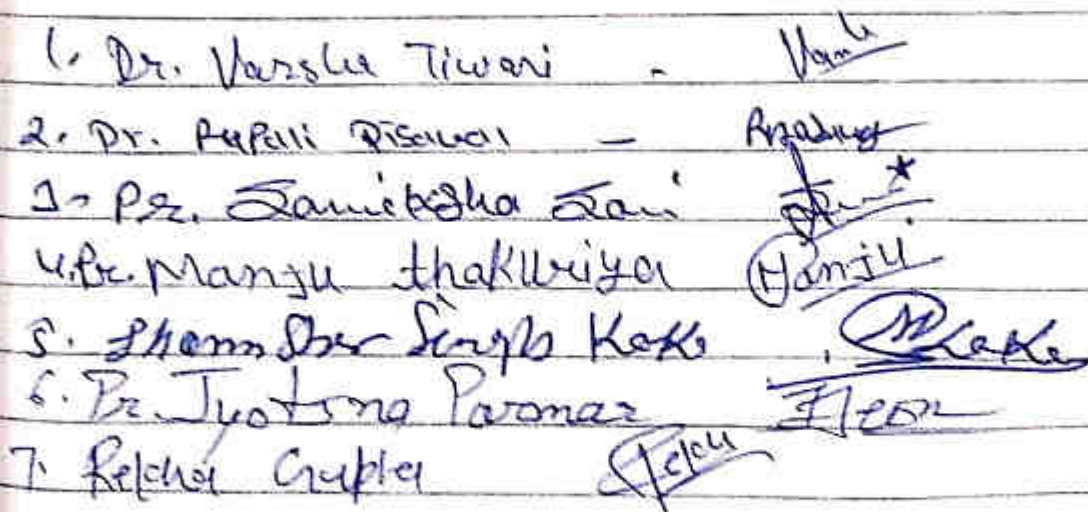 1. Dr. Varsha Tiwari -
2. Dr. Rupali
3- Dr. Samiksha
4. Dr. Manju thakuriya Manju
5. Shamsher Singh Kake Kake
6. Dr. Jyotsna Parmar
7. Rekha Gupta Rekha